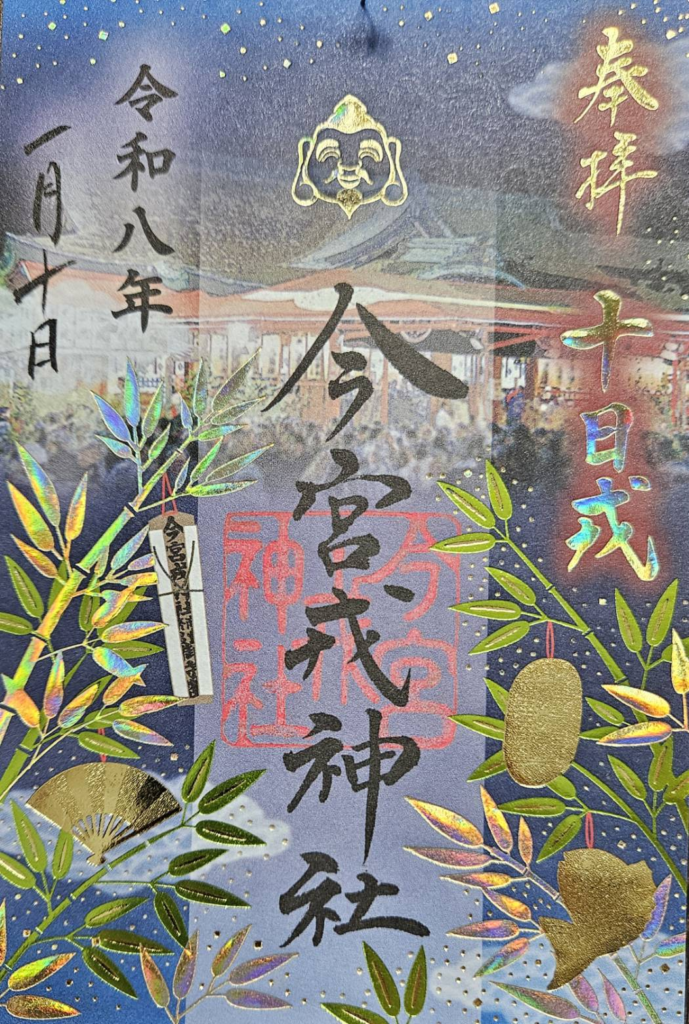 奉拝
十日戎
今宮戎神社
今宮戎神社
令和八年
一月十日